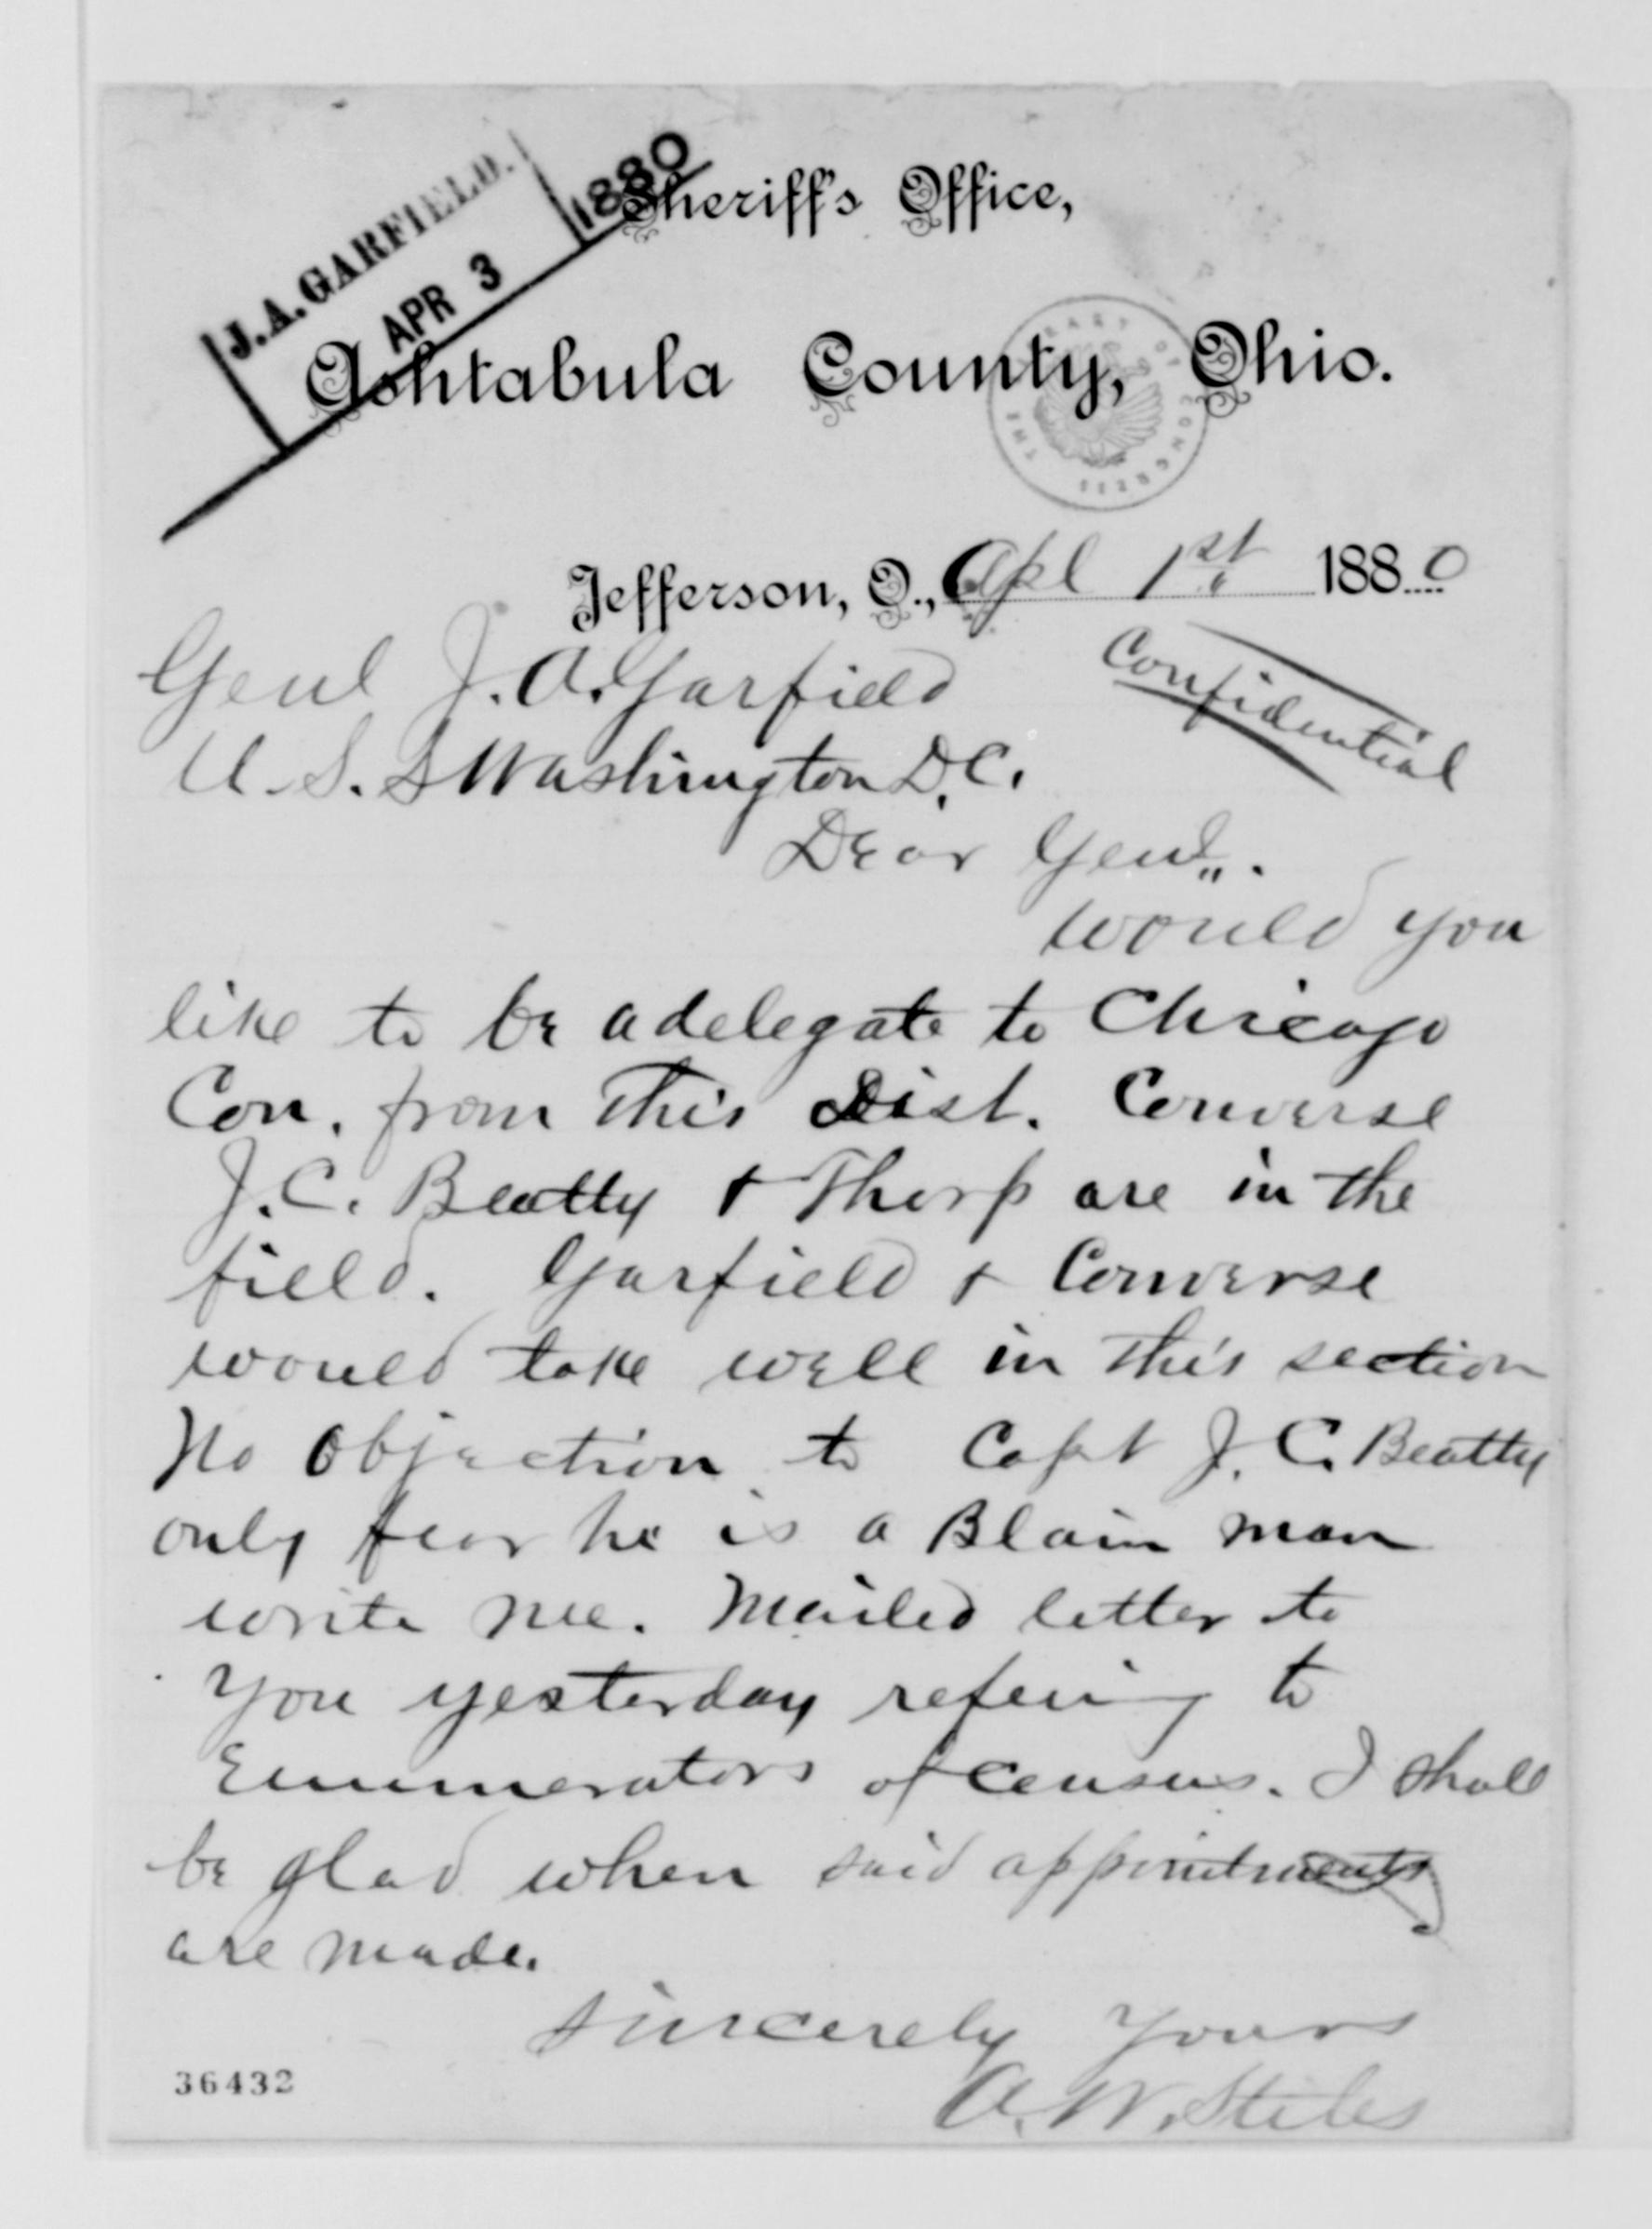 J.A. GARFIELD.
APR 3
1880
Sheriff's Office,
Ashtabula County, Ohio.
THE LIBRARY OF CONGRESS
Jefferson, O., Apl 1st 1880
Confidential
Genl J. A. Garfield
U. S. S Washington D.C.
Dear Genl.
would you
like to be a delegate to Chicago
Con. from this Dist. Converse
J. C. Beatty + Thorp are in the
field. Garfield + Converse
would take well in this section
No objection to Capt J. C. Beatty
only fear he is a Blain man
write me. Mailed letter to
you yesterday refering to
Enumerators of Census. I shall
be glad when said appointments
are made.
Sincerely Yours
A. W. Stiles
36432